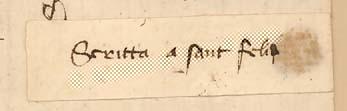 Scritta a sant felip